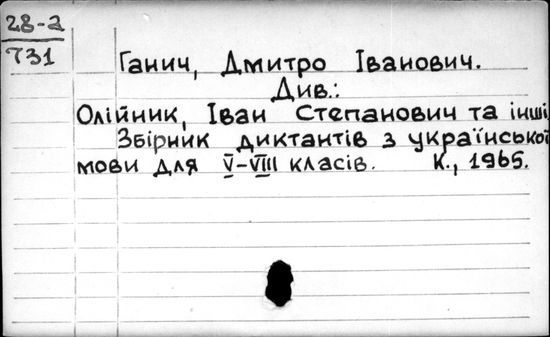 28-а
731
Ганич, Дмитро Іванович.
Див.:
Олійник, Іван Степанович та інші,
Збірник диктантів з української
мови для V-VIII класів. К., 1965.